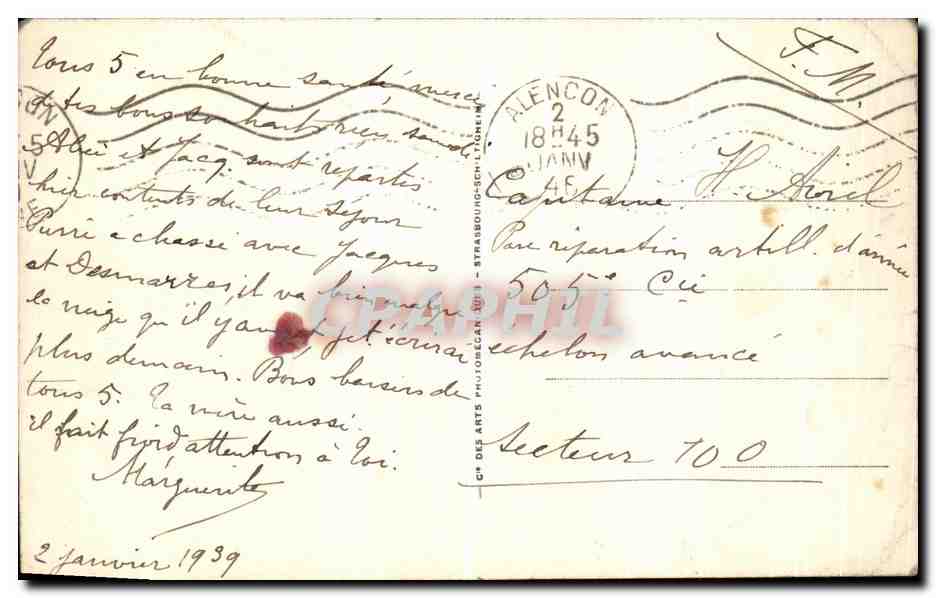 Tous 5 en bonne santé merci
de tes bons souhaits reçus samedi
Alice et Jacq. sont repartis
hier contents de leur séjour
Pierre a chassé avec Jacques
et Desmazzes, il va bien malgré
la neige qu'il y a je t'écrirai
plus demain. Bons baisers de
tous 5. Ta mère aussi.
il fait froid attention à toi.
Marguerite
2 janvier 1939
Cie DES ARTS PHOTOMÉCANIQUES - STRASBOURG-SCHILTIGHEIM
ALENCON
2
18H45
JANV
F.M.
Capitaine H.
Parc réparation artill. d'armée
505e Cie
echelon avancé
Secteur 700
CPAPHIL